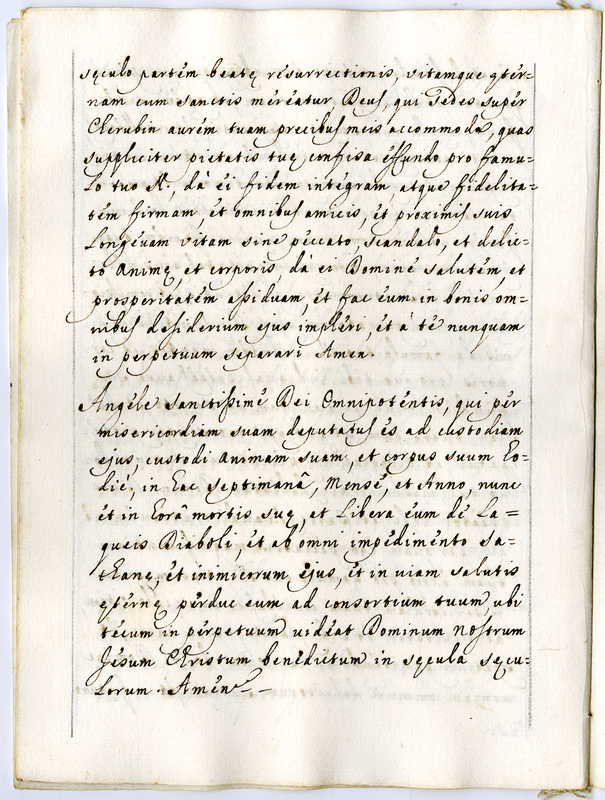 sęculo partem beatę resurrectionis, vitamque ęter=
nam cum sanctis mereatur, Deus, qui sedes super
Cherubin aurem tuam precibus meis accommoda, quas
suppliciter pietatis tuę confisa effundo pro famu=
lo tuo N., dà ei fidem integram, atque fidelita=
tem firmam, et omnibus amicis, et proximis suis
longęuam vitam sine peccato, scandalo, et delic=
to animę, et corporis, dà ei Domine salutem, et
prosperitatem assiduam, et fac eum in bonis om=
nibus desiderium ejus impleri, et à te nunquam
in perpetuum separari Amen.
Angele sanctissime Dei Omnipotentis, qui per
misericordiam suam deputatus es ad custodiam
ejus, custodi animam suam, et corpus suum ho=
diè, in hac septimanâ, Mense, et Anno, nunc
et in horâ mortis suę, et libera eum de la=
queis Diaboli, et ab omni impedimento sa=
thanę, et inimicorum ejus, et in uiam salutis
ęternę perduc eum ad consortium tuum, ubi
tecum in perpetuum uideat Dominum nostrum
Jesum Christum benedictum in sęcula sęcu=
lorum. Amen